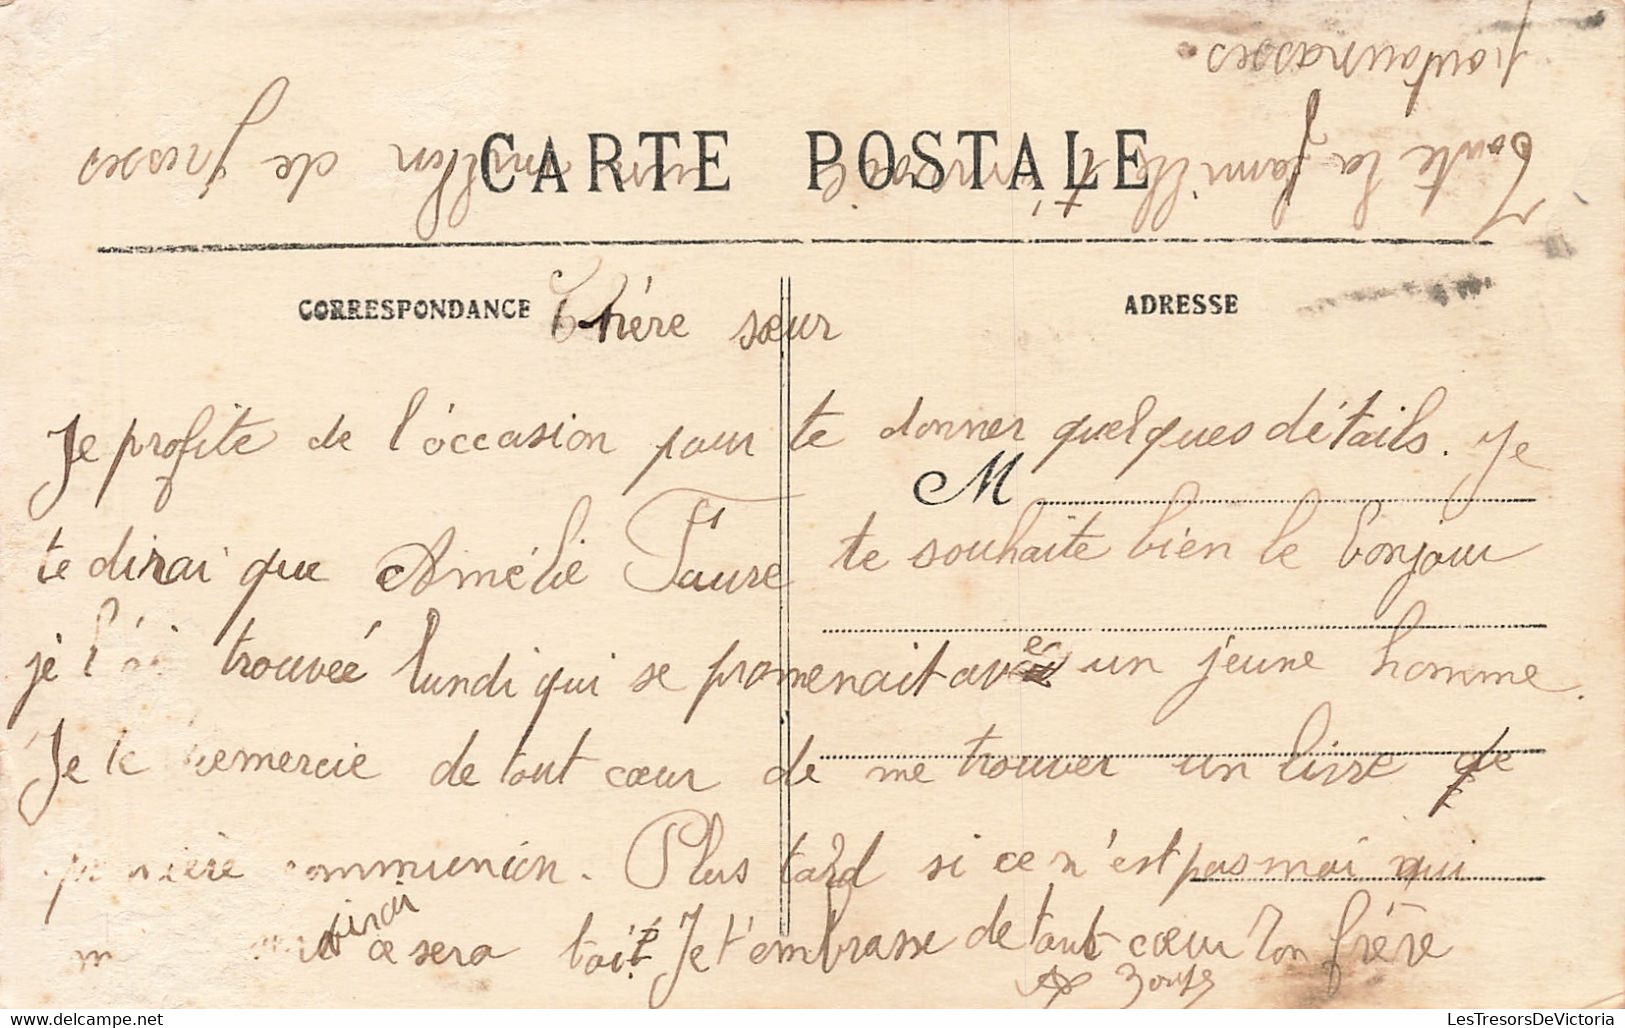 Toute la famille t'envoie un million de grosses
poutounasses
CARTE POSTALE
CORRESPONDANCE
ADRESSE
Chére sœur
Je profite de l'óccasion pour te donner quelques détails. Je
M
te dirai que Amélie Faure te souhaite bien le bonjour
je l'ai trouveé lundi qui se promenait avec un jeune homme.
Je te remercie de tout cœur de me trouver un livre de
première communion. Plus tard si ce n'est pas moi qui
dirai
ce sera toi. Je t'embrasse de tout cœur Ton frère
LesTresorsDeVictoria